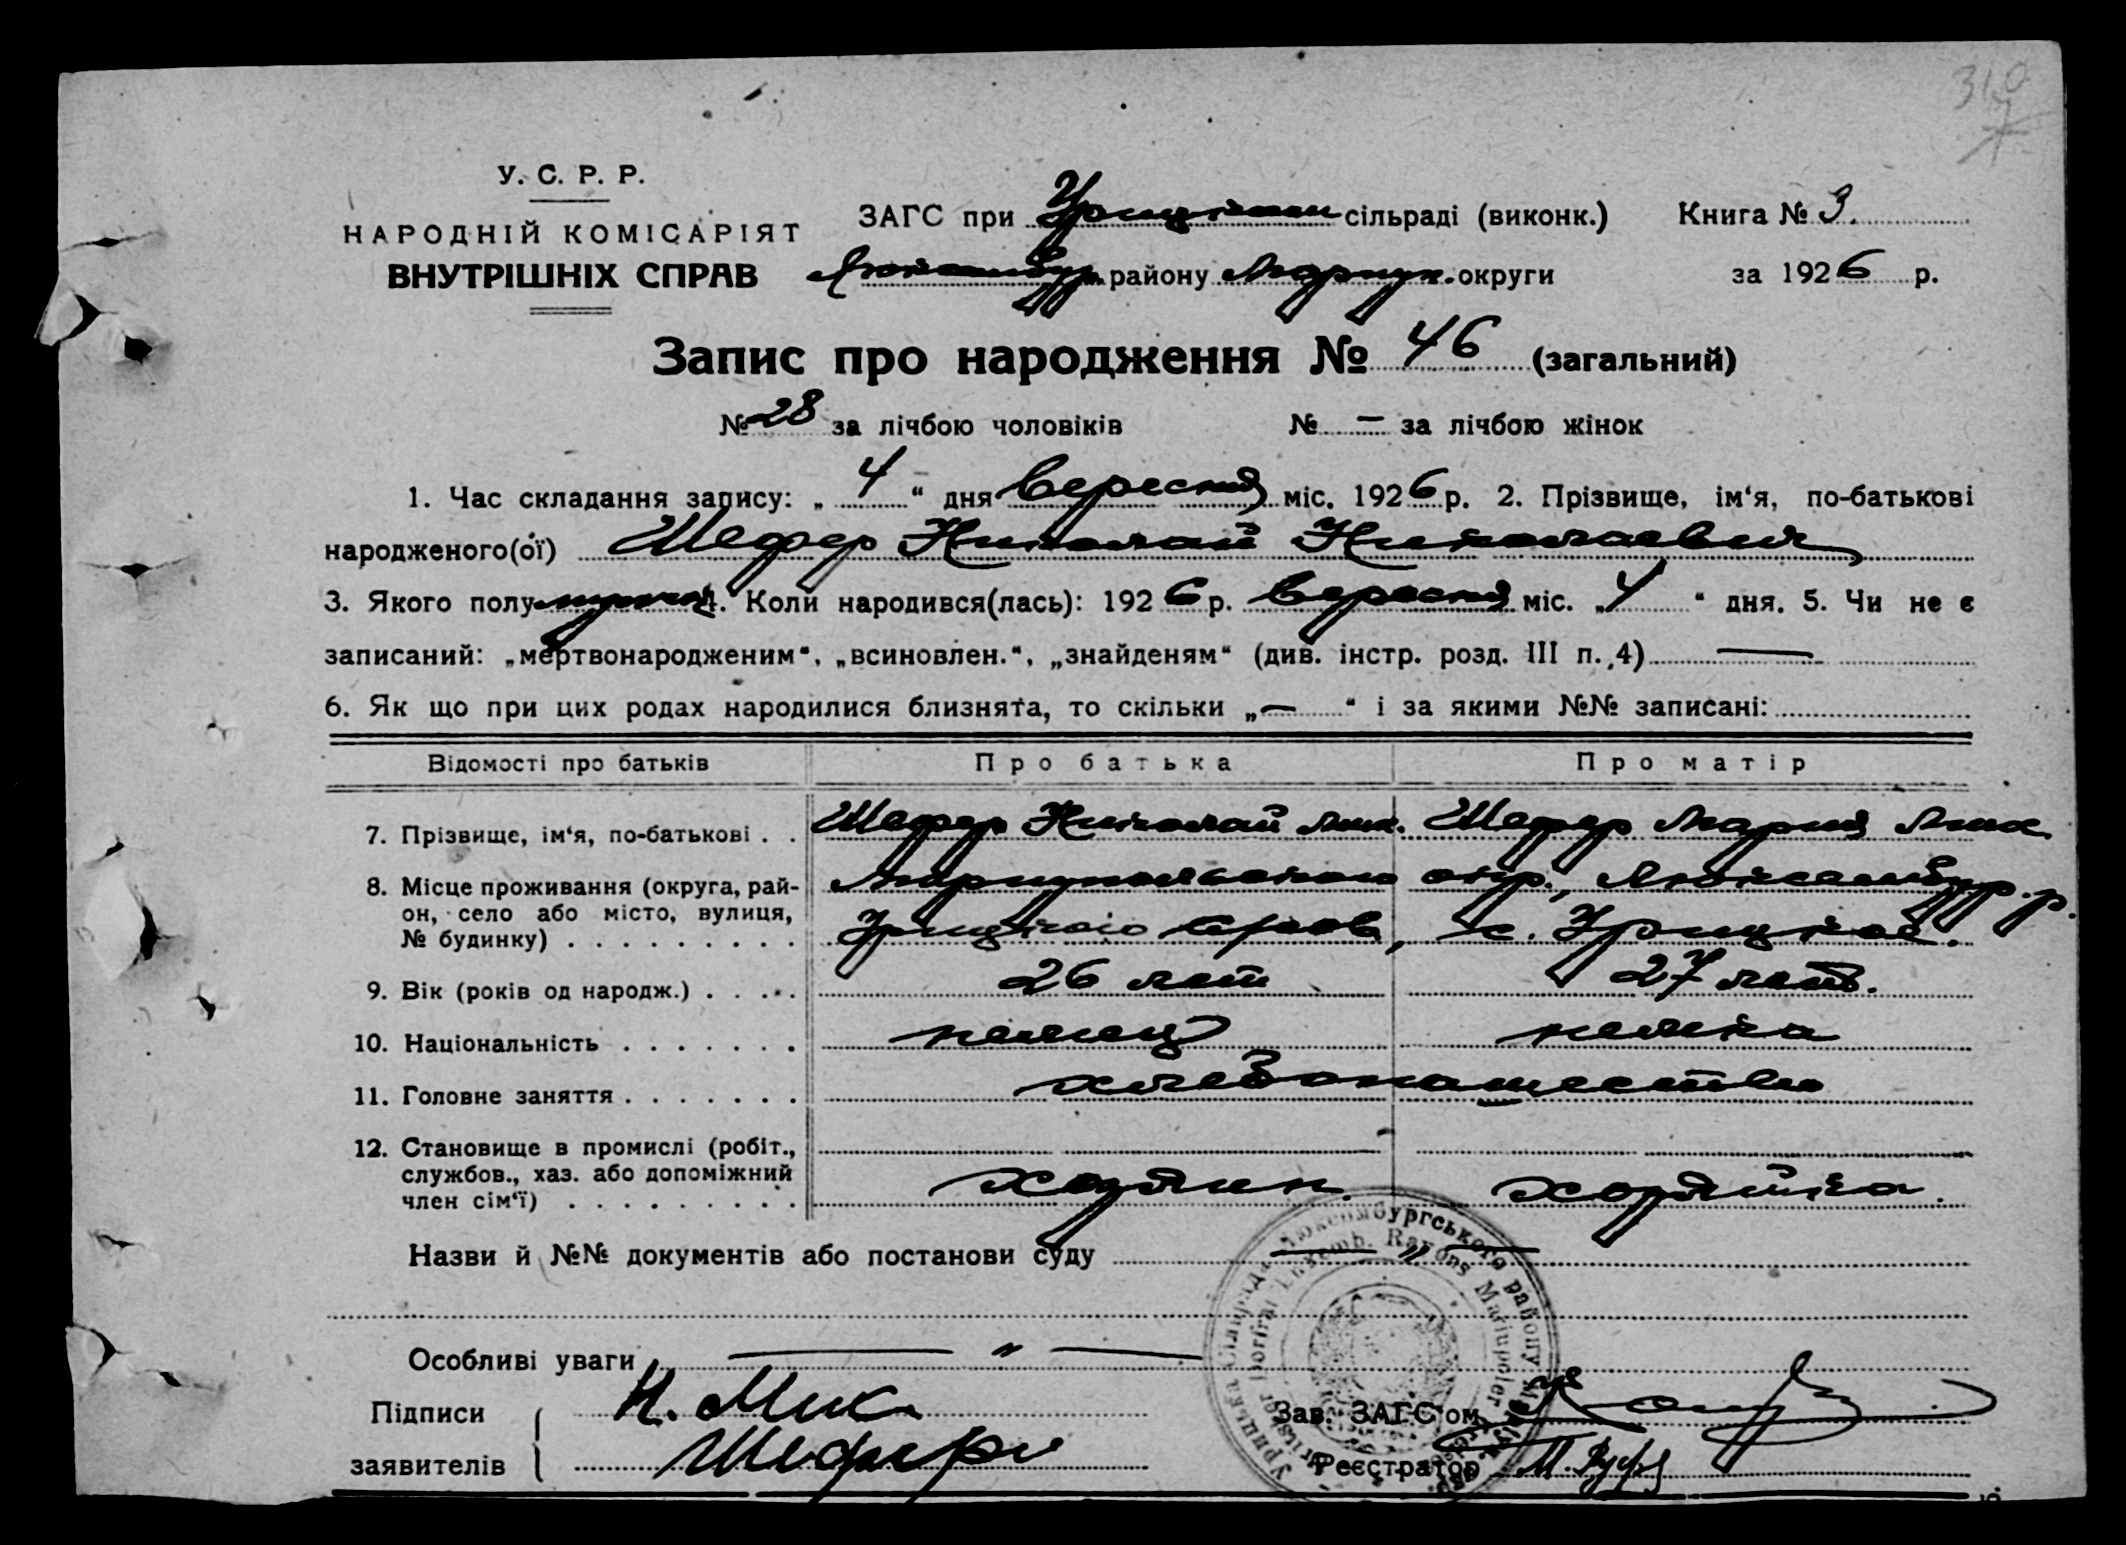 310
7
У. С. Р. Р.
НАРОДНІЙ КОМІСАРІЯТ
ВНУТРІШНІХ СПРАВ
ЗАГС при Урицькой сільраді (виконк.) Книга № 3.
Люксембур. району Мариуп. округи за 1926 р.
Запис про народження № 46 (загальний)
№ 28 за лічбою чоловіків № — за лічбою жінок
1. Час складання запису: „ 4 “ дня вересня міс. 1926 р. 2. Прізвище, ім‘я, по-батькові
народженого(ої) Шефер Николай Николаевич
3. Якого полу мужск 4. Коли народився(лась): 1926 р. вересня міс. „ 4 “ дня. 5. Чи не є
записаний: „мертвонародженим“, „всиновлен.“, „знайденям“ (див. інстр. розд. III п. 4) —
6. Як що при цих родах народилися близнята, то скільки „ — “ і за якими №№ записані:
Відомості про батьків Про батька Про матір
7. Прізвище, ім‘я, по-батькові . . Шефер Николай Мик. Шефер Мария
8. Місце проживання (округа, рай- Мариупольского окр., Люксембур. р.
он, село або місто, вулиця, Урицкого с. Урицкое.
№ будинку) . . . . . . . . .
9. Вік (років од народж.) . . . . 26 лет 27 лет.
10. Національність . . . . . . . немец немка
11. Головне заняття . . . . . . . хлебопашество
12. Становище в промислі (робіт.,
службов., хаз. або допоміжний хозяин. хозяйка.
член сім‘ї) . . . . . . . . .
Назви й №№ документів або постанови суду — „ —
Особливі уваги — „ —
Підписи Н. Мик.
заявителів Шефер
Зав. ЗАГС‘ом
Реєстратор
Урицька Сільрада Люксембургського району
Luxemb. Rayons Mariupoler